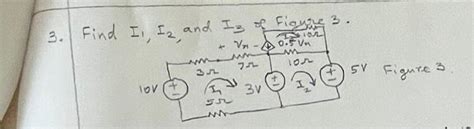 3. Find I1, I2, and I3 of Figure 3.
I3 10Ω
+ Vn - 0.5Vn
3Ω 7Ω 10Ω
10V I1 3V I2 5V Figure 3.
5Ω